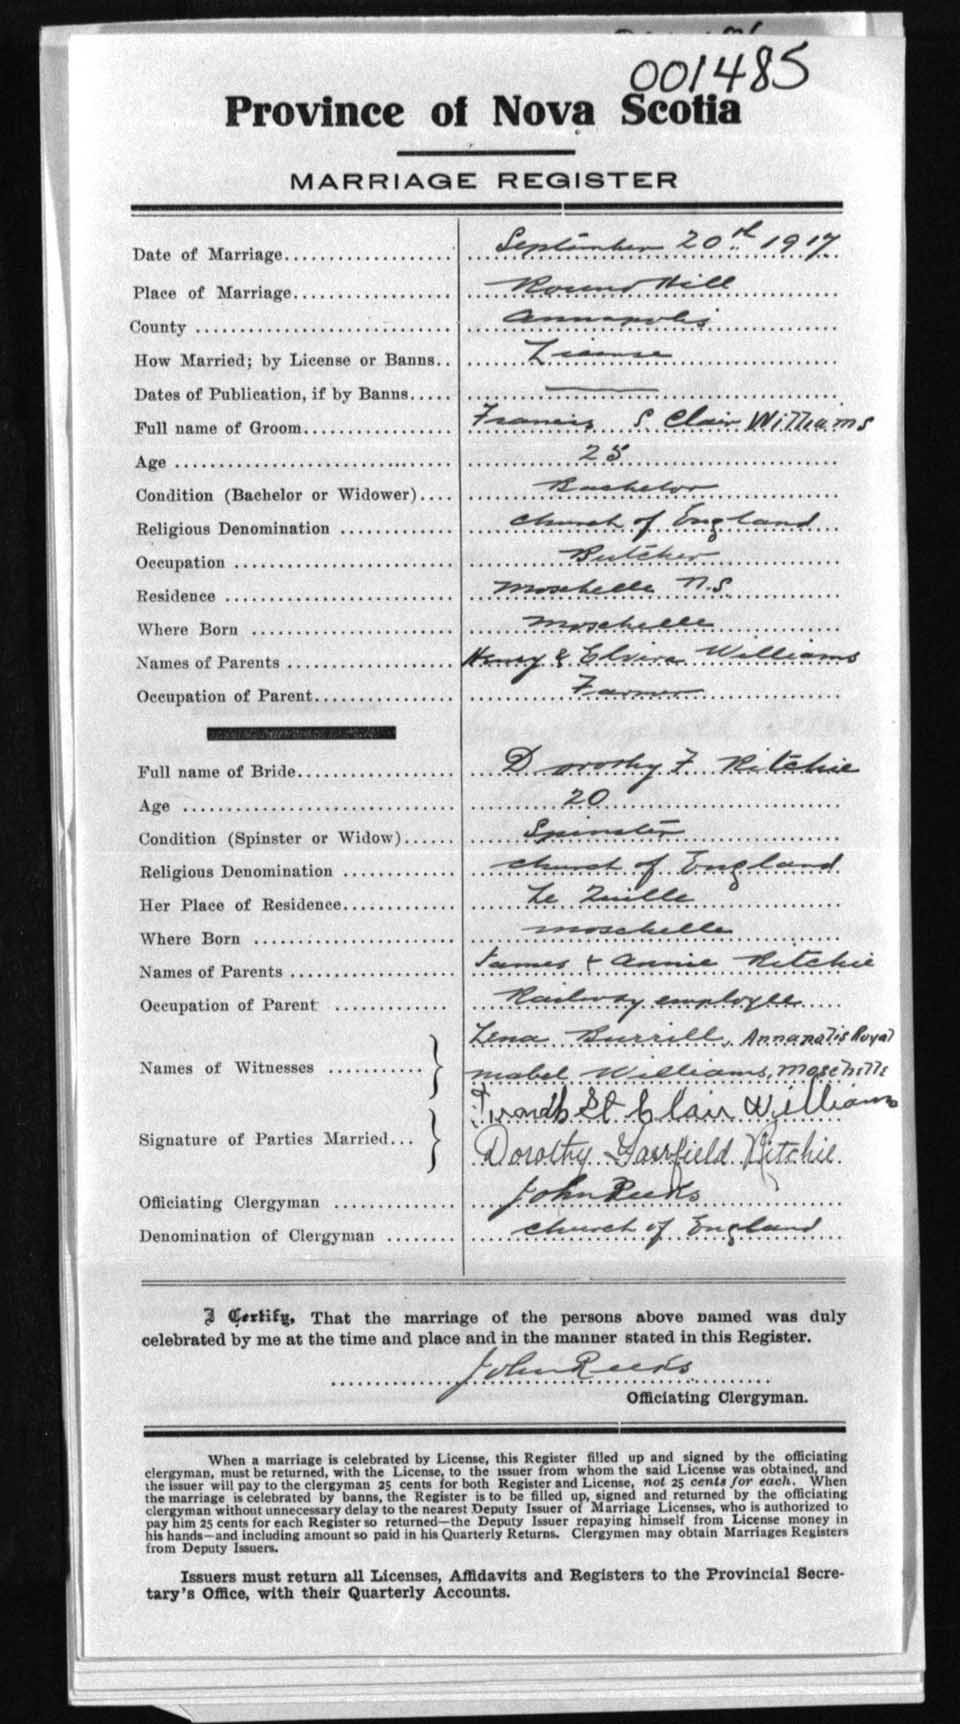 001485
Province of Nova Scotia
MARRIAGE REGISTER
Date of Marriage.................... September 20th 1917
Place of Marriage................... Round Hill
County ............................. Annapolis
How Married; by License or Banns.. License
Dates of Publication, if by Banns..... ———
Full name of Groom.................. Francis S. Clair Williams
Age ................................ 25
Condition (Bachelor or Widower).... Bachelor
Religious Denomination ............. Church of England
Occupation ......................... Butcher
Residence .......................... Moschelle N.S.
Where Born ......................... Moschelle
Names of Parents ................... Henry & Elvira Williams
Occupation of Parent................ Farmer
Full name of Bride.................. Dorothy F Ritchie
Age ................................ 20
Condition (Spinster or Widow)...... Spinster
Religious Denomination ............. Church of England
Her Place of Residence.............. Le Quille
Where Born ......................... Moschelle
Names of Parents ................... James & Annie Ritchie
Occupation of Parent ............... Railway employee
Lena Burrill, Annapolis Royal
Names of Witnesses ...........
Mabel Williams, Moschelle
St Clair Williams
Signature of Parties Married...
Dorothy Garfield Ritchie
Officiating Clergyman .............. John Reeks
Denomination of Clergyman ........ Church of England
I Certify, That the marriage of the persons above named was duly
celebrated by me at the time and place and in the manner stated in this Register.
John Reeks
Officiating Clergyman.
When a marriage is celebrated by License, this Register filled up and signed by the officiating
clergyman, must be returned, with the License, to the issuer from whom the said License was obtained, and
the issuer will pay to the clergyman 25 cents for both Register and License, not 25 cents for each. When
the marriage is celebrated by banns, the Register is to be filled up, signed and returned by the officiating
clergyman without unnecessary delay to the nearest Deputy Issuer of Marriage Licenses, who is authorized to
pay him 25 cents for each Register so returned—the Deputy Issuer repaying himself from License money in
his hands—and including amount so paid in his Quarterly Returns. Clergymen may obtain Marriages Registers
from Deputy Issuers.
Issuers must return all Licenses, Affidavits and Registers to the Provincial Secre-
tary's Office, with their Quarterly Accounts.